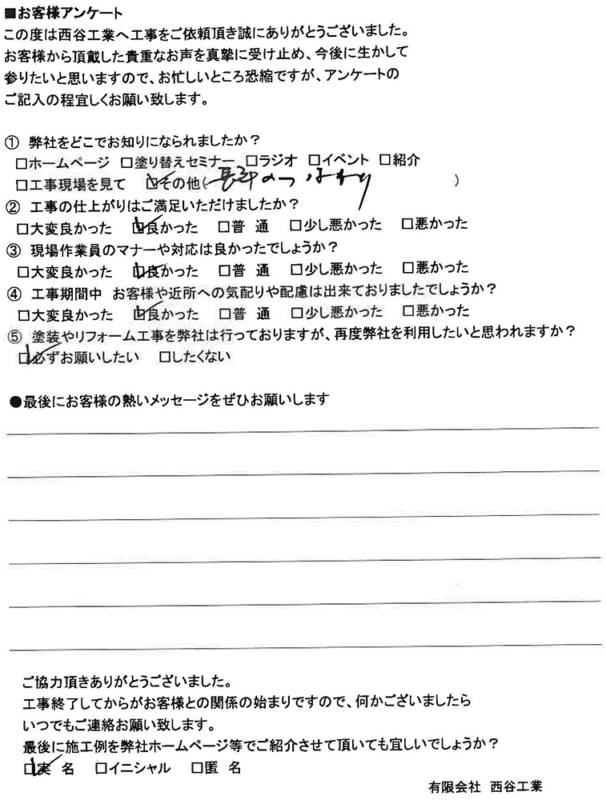 ■お客様アンケート
この度は西谷工業へ工事をご依頼頂き誠にありがとうございました。
お客様から頂戴した貴重なお声を真摯に受け止め、今後に生かして
参りたいと思いますので、お忙しいところ恐縮ですが、アンケートの
ご記入の程宜しくお願い致します。
① 弊社をどこでお知りになられましたか？
□ホームページ □塗り替えセミナー □ラジオ □イベント □紹介
□工事現場を見て ☑その他( つながり )
② 工事の仕上がりはご満足いただけましたか？
□大変良かった ☑良かった □普 通 □少し悪かった □悪かった
③ 現場作業員のマナーや対応は良かったでしょうか？
□大変良かった ☑良かった □普 通 □少し悪かった □悪かった
④ 工事期間中 お客様や近所への気配りや配慮は出来ておりましたでしょうか？
□大変良かった ☑良かった □普 通 □少し悪かった □悪かった
⑤ 塗装やリフォーム工事を弊社は行っておりますが、再度弊社を利用したいと思われますか？
☑必ずお願いしたい □したくない
●最後にお客様の熱いメッセージをぜひお願いします
ご協力頂きありがとうございました。
工事終了してからがお客様との関係の始まりですので、何かございましたら
いつでもご連絡お願い致します。
最後に施工例を弊社ホームページ等でご紹介させて頂いても宜しいでしょうか？
☑実 名 □イニシャル □匿 名
有限会社 西谷工業